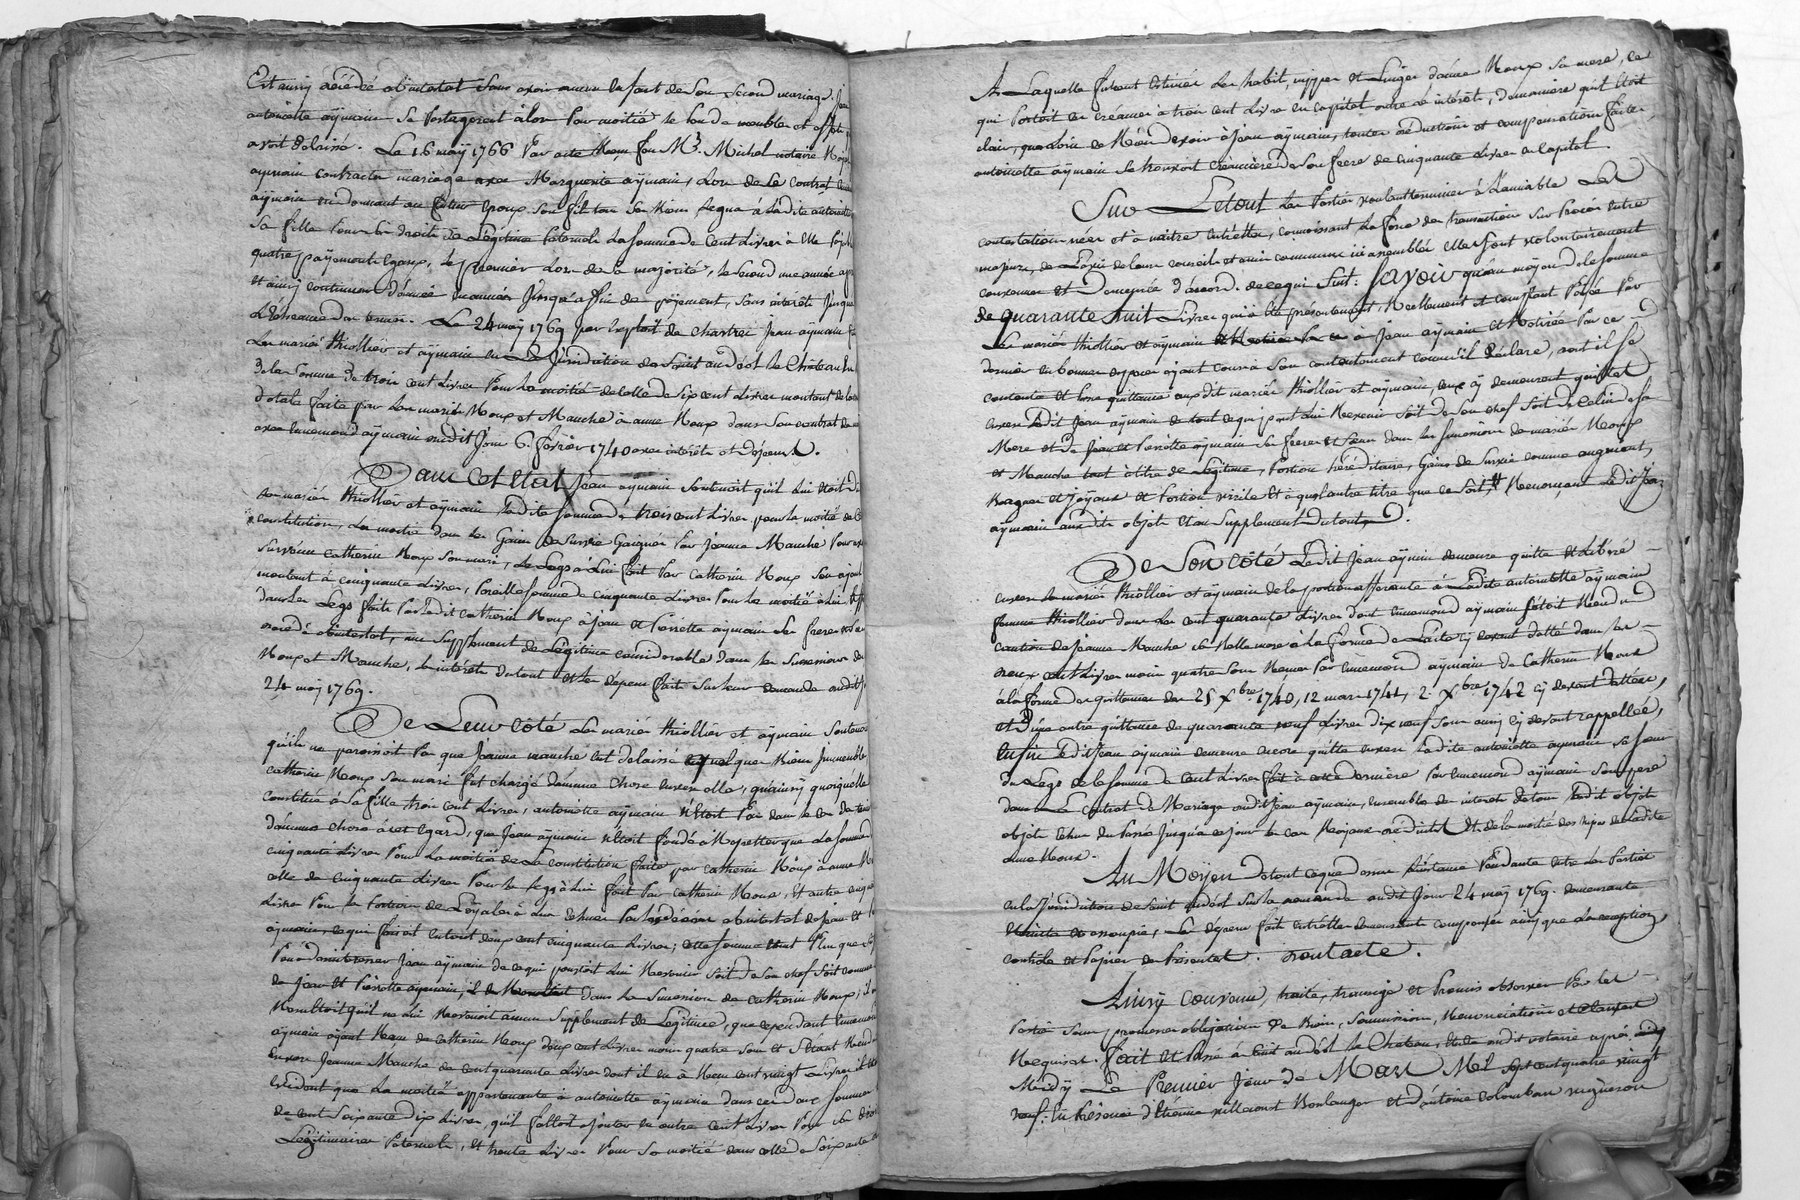 Est aussy décédé abintestat Sans avoir aucun enfant de Son Second mariage. Jean
antoinette aÿmain Se Partagerent alors Par moitié le bon de meubles et effets qu
avoit délaissé. Le 16 maÿ 1766 Par acte Reçu feu Mᵉ. Michel notaire Roya
aymain contracta mariage avec Marguerite aÿmain, Lors de Ce Contrat
aÿmain en donnant au futur Epoux Son fils tous Ses biens legua à Ladite antoinette
Sa fille Pour Ses droits de Légitime Paternels La Somme de Cent Livres à Elle
quatre païements Egaux, le premier Lors de Sa majorité, le Second une année ap
Et ainsy continuer d'année En année Jusqu'a fin de payement, Sans intérêts Jusque
à L'échéance des termes. Le 24 maÿ 1769 par Exploit de Chartres Jean aÿmain
Les mariés thiollier et aÿmain en La Jurisdiction de Saint andéol le Château
de la Somme de trois cent Livres Pour La moitié de Celle de Six cent Livres montant de la
dotale faite par Les mariés Roux et Manche à anne Roux dans Son contrat de
avec Ennemond aÿmain dudit Jour 6. fevrier 1740 avec intérêts et dépens.
Dans Cet Etat Jean aÿmain Soutenoit qu'il Lui Etoit
Les mariés thiollier et aÿmain Ladite Somme de trois cent Livres pour La moitié de
constitution, La moitié dans les Gains de Survie Gaignés Par Jeanne Manche Pour
Survécu Catherin Roux Son mari, Le Legs à Lui fait Par Catherin Roux Son ayeul
montant à cinquante Livres, Pareille Somme de cinquante Livres Pour La moitié à Lui
dans Les Legs faits Par Ledit Catherin Roux à Jean et Pierrette aÿmain Ses frere et Sœur
morts abintestat, un Supplement de Légitime considérable dans les Successions des
Roux et Manche, les intérêts du tout et les dépens faits Sur leur demande dudit J
24 maÿ 1769.
De Leur Côté Les mariés thiollier et aÿmain Soutenoi
qu'il ne paroissoit Pas que Jeanne manche eut delaissé quelques biens Immeubles
Catherin Roux Son mari fut chargé d'aucune Chose Envers elle, qu'ainsy quoiqu'elle
constitué à Sa fille trois cent Livres, antoinette aÿmain n'étoit Pas dans le cas de
d'aucune chose à cet Egard, que Jean aÿmain n'étoit fondé à Répéter que La Somme
cinquante Livres Pour La moitié de La constitution faite par Catherin Roux à anne
celle de cinquante Livres Pour le legs à Lui fait Par Catherin Roux, Et autre cinqua
Livres Pour la Portion de Loyale à Lui Echue Par le décès abintestat de Jean et
aÿmain, ce qui faisoit En tout deux cent cinquante Livres; cette Somme Etoit Plus que
Pour désintéresser Jean aÿmain de ce qui pouvoit Lui Revenir Soit de Son chef Soit comme
de Jean Et Pierrette aÿmain, dans la Succession de Catherin Roux;
Résultoit qu'il ne Lui Revenoit aucun Supplement de Légitime, que cependant Ennemon
aÿmain ayant Reçu de Catherin Roux deux cent Livres moins quatre Sous Et S'étant Rendu
Envers Jeanne Manche de cent quarante Livres dont il en à Reçu cent vingt Livres il
Evident que La moitié appartenante à antoinette aÿmain dans ces deux Sommes
de cent Soixante dix Livres, qu'il falloit ajouter en outre cent Livres Pour les droits
Légitimaires Paternels, Et trente Livres Pour Sa moitié dans celle de Soixante
A Laquelle furent Estimés Les habits, nippes et Linges d'anne Roux Sa mere, ce
qui Portoit Ses Créances à trois cent Livres En Capital outre les intérêts, de maniere qu'il Etoit
clair, que Loin de Rien devoir à Jean aÿmain, toutes déductions et compensations faites
antoinette aÿmain Se trouvoit Créanciere de Son frere de cinquante Livres En Capital.
Sur Letout Les Parties voulant terminer à L'amiable Les
contestations nées et à naitre Entr'elles, connoissant La force des transactions Sur Procès Entre
majeurs, de L'avis de leurs conseils et amis communs ici assemblés Elles Sont volontairement
convenues Et demeurées d'accord. de ce qui Suit: Savoir qu'au moyen de la Somme
de quarante huit Livres qui à Eté présentement, Réellement et comptant Païée Par
Les mariés thiollier et aÿmain à Jean aÿmain Et Retirée Par ce
dernier En bonnes Espèces aÿant cours à Son contentement comme il declare, dont il Se
contente et Leur quittance auxdits mariés thiollier et aÿmain, ceux cÿ demeurent quittes
Envers Ledit Jean aÿmain de tout ce qui peut Lui Revenir Soit de Son chef Soit de Celui de Sa
Mere et de Jean et Pierrette aÿmain Ses frere et Sœur dans les Successions des mariés Roux
et Manche tant à titre de Légitime, Portion héréditaire, Gains de Survie comme augment,
Bagues et joyaux Et Portion virile Et à quel autre titre que ce Soit, Renonçant Ledit Jean
aÿmain auxdits objets et au Supplement du tout.
De Son Côté Ledit Jean aÿmain demeure quitte et Libéré
Envers Les mariés thiollier et aÿmain de la portion afférante à Ladite antoinette aÿmain
femme thiollier dans Les cent quarante Livres dont Ennemond aÿmain S'étoit Rendu
caution de Jeanne Manche Sa Belle mere à La forme de L'acte cÿ devant datté dans les
deux cent Livres moins quatre Sous Reçues Par Ennemond aÿmain de Catherin Roux
à la forme des quittances des 25 Xbre 1740, 12 mars 1741, 2. Xbre 1742 cÿ devant dattées,
et d'une autre quittance de quarante neuf Livres dix neuf Sous aussy cÿ devant rappellée,
Enfin Ledit Jean aÿmain demeure Encore quitte Envers Ladite antoinette aÿmain Sa Sœur
du Legs de la Somme de Cent Livres fait à cette derniere Par Ennemond aÿmain Son pere
dans Le Contrat de Mariage dudit Jean aÿmain, Ensemble des intérêts de tous Lesdits objets
objets Echus du Passé Jusqu'a ce jour Et de la moitié des nipes de Ladite
anne Roux.
Au Moÿen de tout ce que dessus L'instance Pendante Entre Les Parties
En la Jurisdiction de Saint andéol Sur la demande dudit Jour 24 maÿ 1769. demeurante
Eteinte Et assoupie, Les dépens faits Entr'elles demeurants compensés ainsy que La réception
contrôle et Papier du Présent. dont acte.
Ainsy Convenu, traité, transigé et Promis observer Par les
Parties Sous promesses obligations de biens, Soumissions, Renonciations et Clauses
Requises. fait et Passé à Saint andéol le Chateau, Etude dudit notaire après
Midÿ Le Premier Jour de Mars Mil Sept cent quatre vingt
neuf: En présence d'Etienne villaconat Boulanger et d'antoine colomban vigneron